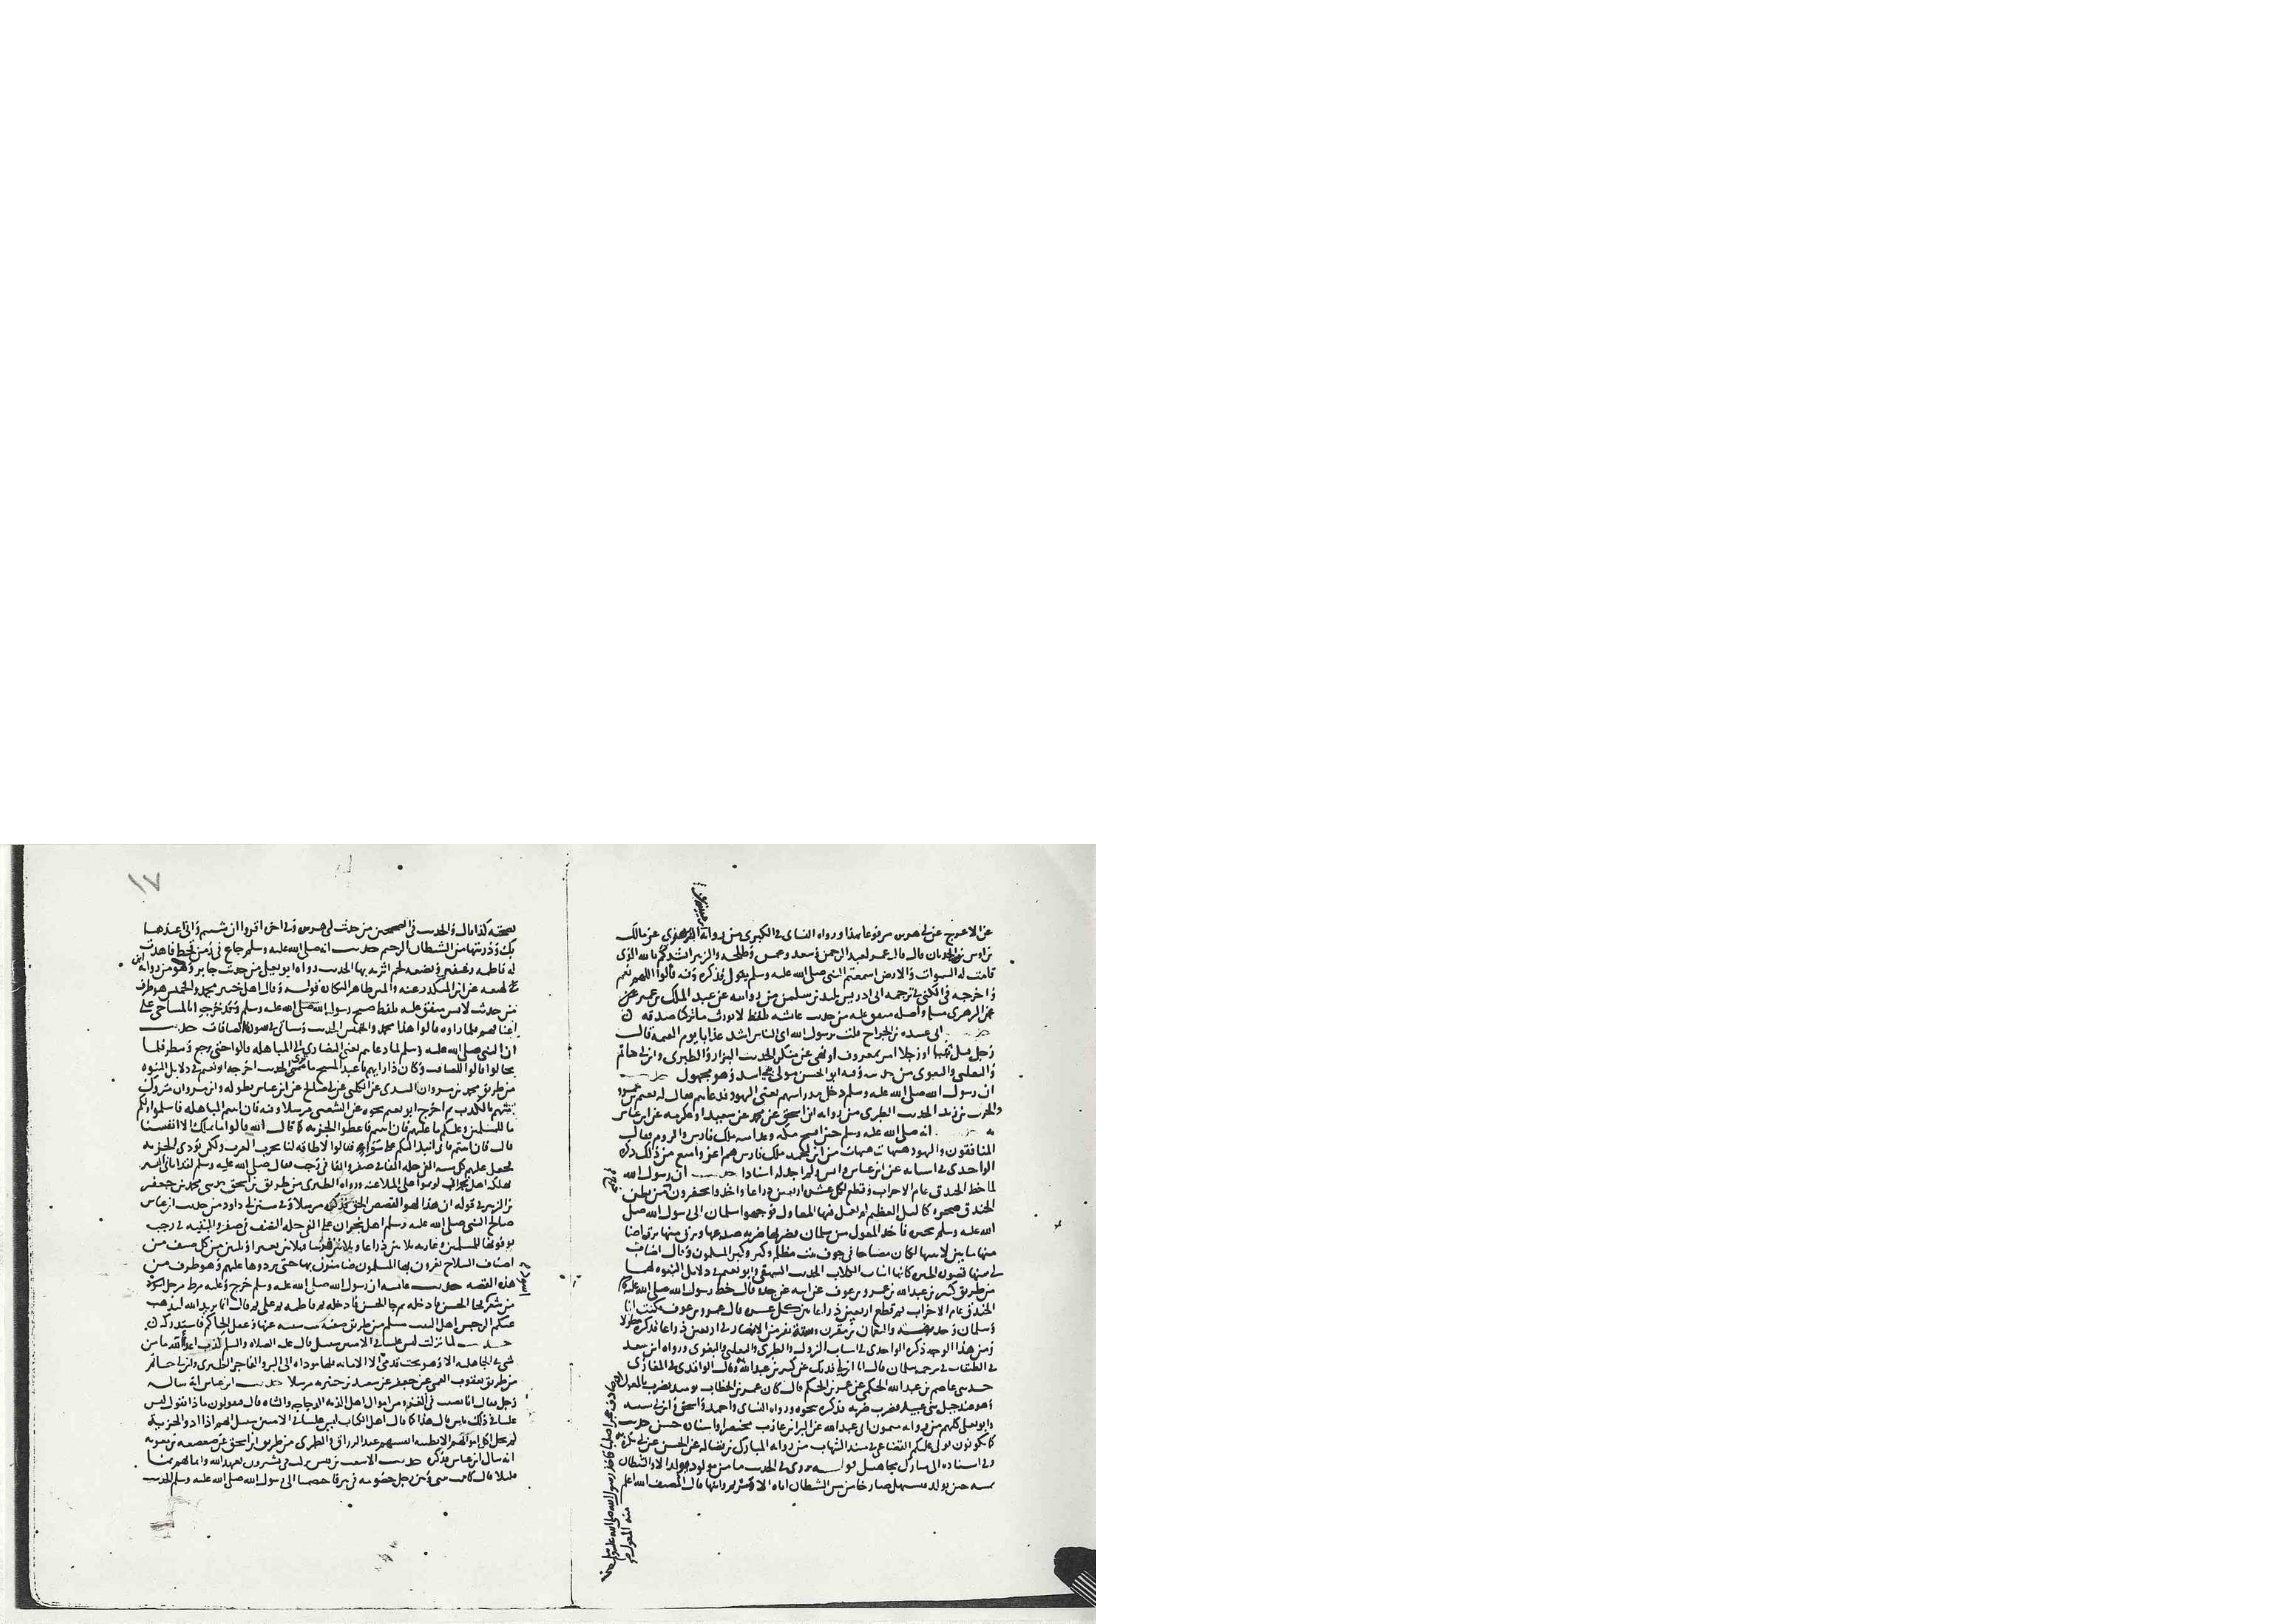 عن الاعرج عن ابي هريرة مرفوعا بهذا ورواه النساي في الكبري من رواية الزهري عن مالك
بن اوس بن الحدثان قال قال عمر لعبد الرحمن وسعد وعثمن وطلحه والزبير انشدكم بالله الذي
قامت له السموات والارض اسمعتم النبي صلى الله عليه وسلم يقول فذكره وفيه قالوا اللهم نعم
واخرجه في الكني في ترجمه ابي ادريس تليد بن سليمن من روايته عن عبد الملك بن عمير عن
عن الزهري مسلم واصله متفق عليه من حديث عائشه بلفظ لا نورث ما تركنا صدقه
ابي عبيده بن الجراح قلت يرسول الله اي الناس اشد عذابا يوم القيمه قال
رجل قتل نبيا او رجلا امر بمعروف او نهي عن منكر الحديث البزار والطبري وابن ابي حاتم
والثعلبي والبغوي من حديثه وفيه ابو الحسن مولي بني اسد وهو مجهول حديث
ان رسول الله صلى الله عليه وسلم دخل مدراسهم يعني اليهود فدعاهم فقال له نعيم بن عمرو
والحرث بن زيد الحديث الطبري من رواية ابن اسحق عن محمد عن سعيد او عكرمه عن ابن عباس
انه صلى الله عليه وسلم حين افتتح مكه وعد امته ملك فارس والروم فقال
المنافقون واليهود هيهات هيهات من اين لمحمد ملك فارس هم اعز وامنع من ذلك ذكره
الواحدي في اسبابه عن ابن عباس وانس ولم اجد له اسنادا حديث ان رسول الله
لما خط الخندق عام الاحزاب وقطع لكل عشره اربعين ذراعا واخذوا يحفرون خرج من بطن
الخندق صخره كالتل العظيم لم تعمل فيها المعاول فوجهوا سلمان الي رسول الله صلى
الله عليه وسلم يخبره فاخذ المعول من سلمان فضربها ضربه صدعها وبرق منها برق اضا
منها ما بين لابتيها لكان مصباحا في جوف بيت مظلم وكبر وكبر المسلمون وقال اضات
لي منها قصور الحيره كانها انياب الكلاب الحديث البيهقي وابو نعيم في دلايل النبوه لهما
من طريق كثير بن عبد الله بن عمرو بن عوف عن ابيه عن جده قال خط رسول الله صلى الله عليه وسلم
الخندق عام الاحزاب ثم قطع اربعين ذراعا بين كل عشره قال عمرو بن عوف فكنت انا
وسلمان وحذيفة والنعمان بن مقرن وستة نفر من الانصار في اربعين ذراعا فذكره مطولا
ومن هذا الوجه ذكره الواحدي في اسباب النزول والطبري والثعلبي والبغوي ورواه ابن سعد
في الطبقات في ترجمه سلمان قال انا ابن ابي فديك عن كثير بن عبد الله به وقال الواقدي في المغازي
حدثني عاصم بن عبد الله الحكمي عن عمر بن الحكم قال كان عمر بن الخطاب يوميذ يضرب بالمعول
فضرب ضربه فذكره بنحوه ورواه النساي واحمد واسحق وابن ابي شيبه
وابو يعلي كلهم من رواية ميمون ابي عبد الله عن البراء بن عازب مختصرا واسناده حسن حديث
كما تكونون يولي عليكم القضاعي في مسند الشهاب من رواية المبارك بن فضاله عن الحسن عن ابي بكره
وفي اسناده الي مبارك مجاهيل قوله يروي في الحديث ما من مولود يولد الا والشيطان
يمسه حين يولد فيستهل صارخا من مس الشيطان اياه الا مريم وابنها قال المصنف الله اعلم
بصحته كذا قال والحديث في الصحيحين من حديث ابي هريرة وفي اخره اقروا ان شيتم واني اعيذها
بك وذريتها من الشيطان الرجيم حديث انه صلى الله عليه وسلم جاع في زمن قحط فاهدت
له فاطمه رغيفين وبضعه لحم اثرته بها الحديث رواه ابو يعلي من حديث جابر وهو من رواية ابن
لهيعه عن ابن المنكدر عنه والمتن ظاهر النكاره قوله وقال اهل خيبر محمد والخميس هو طرف
من حديث لانس متفق عليه بلفظ صبح رسول الله صلى الله عليه وسلم وقد خرجوا بالمساحي علي
اعناقهم فلما راوه قالوا هذا محمد والخميس الحديث وسياتي في سورة الصافات حديث
ان النبي صلى الله عليه وسلم لما دعاهم يعني النصاري الي المباهله قالوا حتي نرجع وننظر فلما
تخالوا قالوا للعاقب وكان ذا رايهم يا عبد المسيح ما تري الحديث اخرجه ابو نعيم في دلايل النبوه
من طريق محمد بن مروان السدي عن الكلبي عن ابي صالح عن ابن عباس بطوله وابن مروان متروك
متهم بالكذب ثم اخرج ابو نعيم نحوه عن الشعبي مرسلا وفيه فان ابيتم المباهله فاسلموا ولكم
ما للمسلمين وعليكم ما عليهم فان ابيتم فاعطوا الجزيه كما قال الله قالوا ما نملك الا انفسنا
قال فان ابيتم فاني انبذ اليكم علي سواء فقالوا لا طاقه لنا بحرب العرب ولكن نودي الجزيه
فجعل عليهم كل سنه الفي حله الفا في صفر والفا في رجب فقال صلى الله عليه وسلم لقد اتاني البشير
بهلكه اهل نجران لو تموا علي الملاعنه ورواه الطبري من طريق ابن اسحق حدثني محمد بن جعفر
بن الزبير في قوله ان هذا لهو القصص الحق فذكره مرسلا وفي سنن ابي داود من حديث ابن عباس
صالح النبي صلى الله عليه وسلم اهل نجران علي الفي حله النصف في صفر والبقيه في رجب
يودونها للمسلمين وعاريه ثلاثين درعا وثلاثين فرسا وثلاثين بعيرا وثلثين من كل صنف من
اصناف السلاح يغزون بها المسلمون ضامنون بها حتي يردوها عليهم وهو طرف من
هذه القصه حديث عائشه ان رسول الله صلى الله عليه وسلم خرج وعليه مرط مرحل اسود
من شعر فجا الحسن فادخله ثم جا الحسين فادخله ثم فاطمه ثم علي ثم قال انما يريد الله ليذهب
عنكم الرجس اهل البيت مسلم من طريق صفيه بنت شيبه عنها وغفل الحاكم فاستدركه
حديث لما نزلت ليس علينا في الاميين سبيل قال عليه الصلاه والسلم كذب اعداء الله ما من
شي في الجاهليه الا وهو تحت قدمي الا الامانه فانها موداه الي البر والفاجر الطبري وابن ابي حاتم
من طريق يعقوب القمي عن جعفر عن سعيد بن جبير به مرسلا حديث ابن عباس انه ساله
رجل فقال انا نصيب في الغزو من اموال اهل الذمه الدجاجه والشاه قال فتقولون ماذا قال نقول ليس
علينا في ذلك باس قال هذا كما قال اهل الكتاب ليس علينا في الاميين سبيل انهم اذا ادوا الجزيه
لم يحل اكل اموالهم الا بطيبه انفسهم عبد الرزاق والطبري من طريق ابي اسحق عن صعصعه بن معويه
انه سال ابن عباس فذكره حديث الاشعث بن قيس نزلت في يشترون بعهد الله وايمانهم ثمنا
قليلا قال كانت بيني وبين رجل خصومه في بير فاختصمنا الي رسول الله صلى الله عليه وسلم الحديث